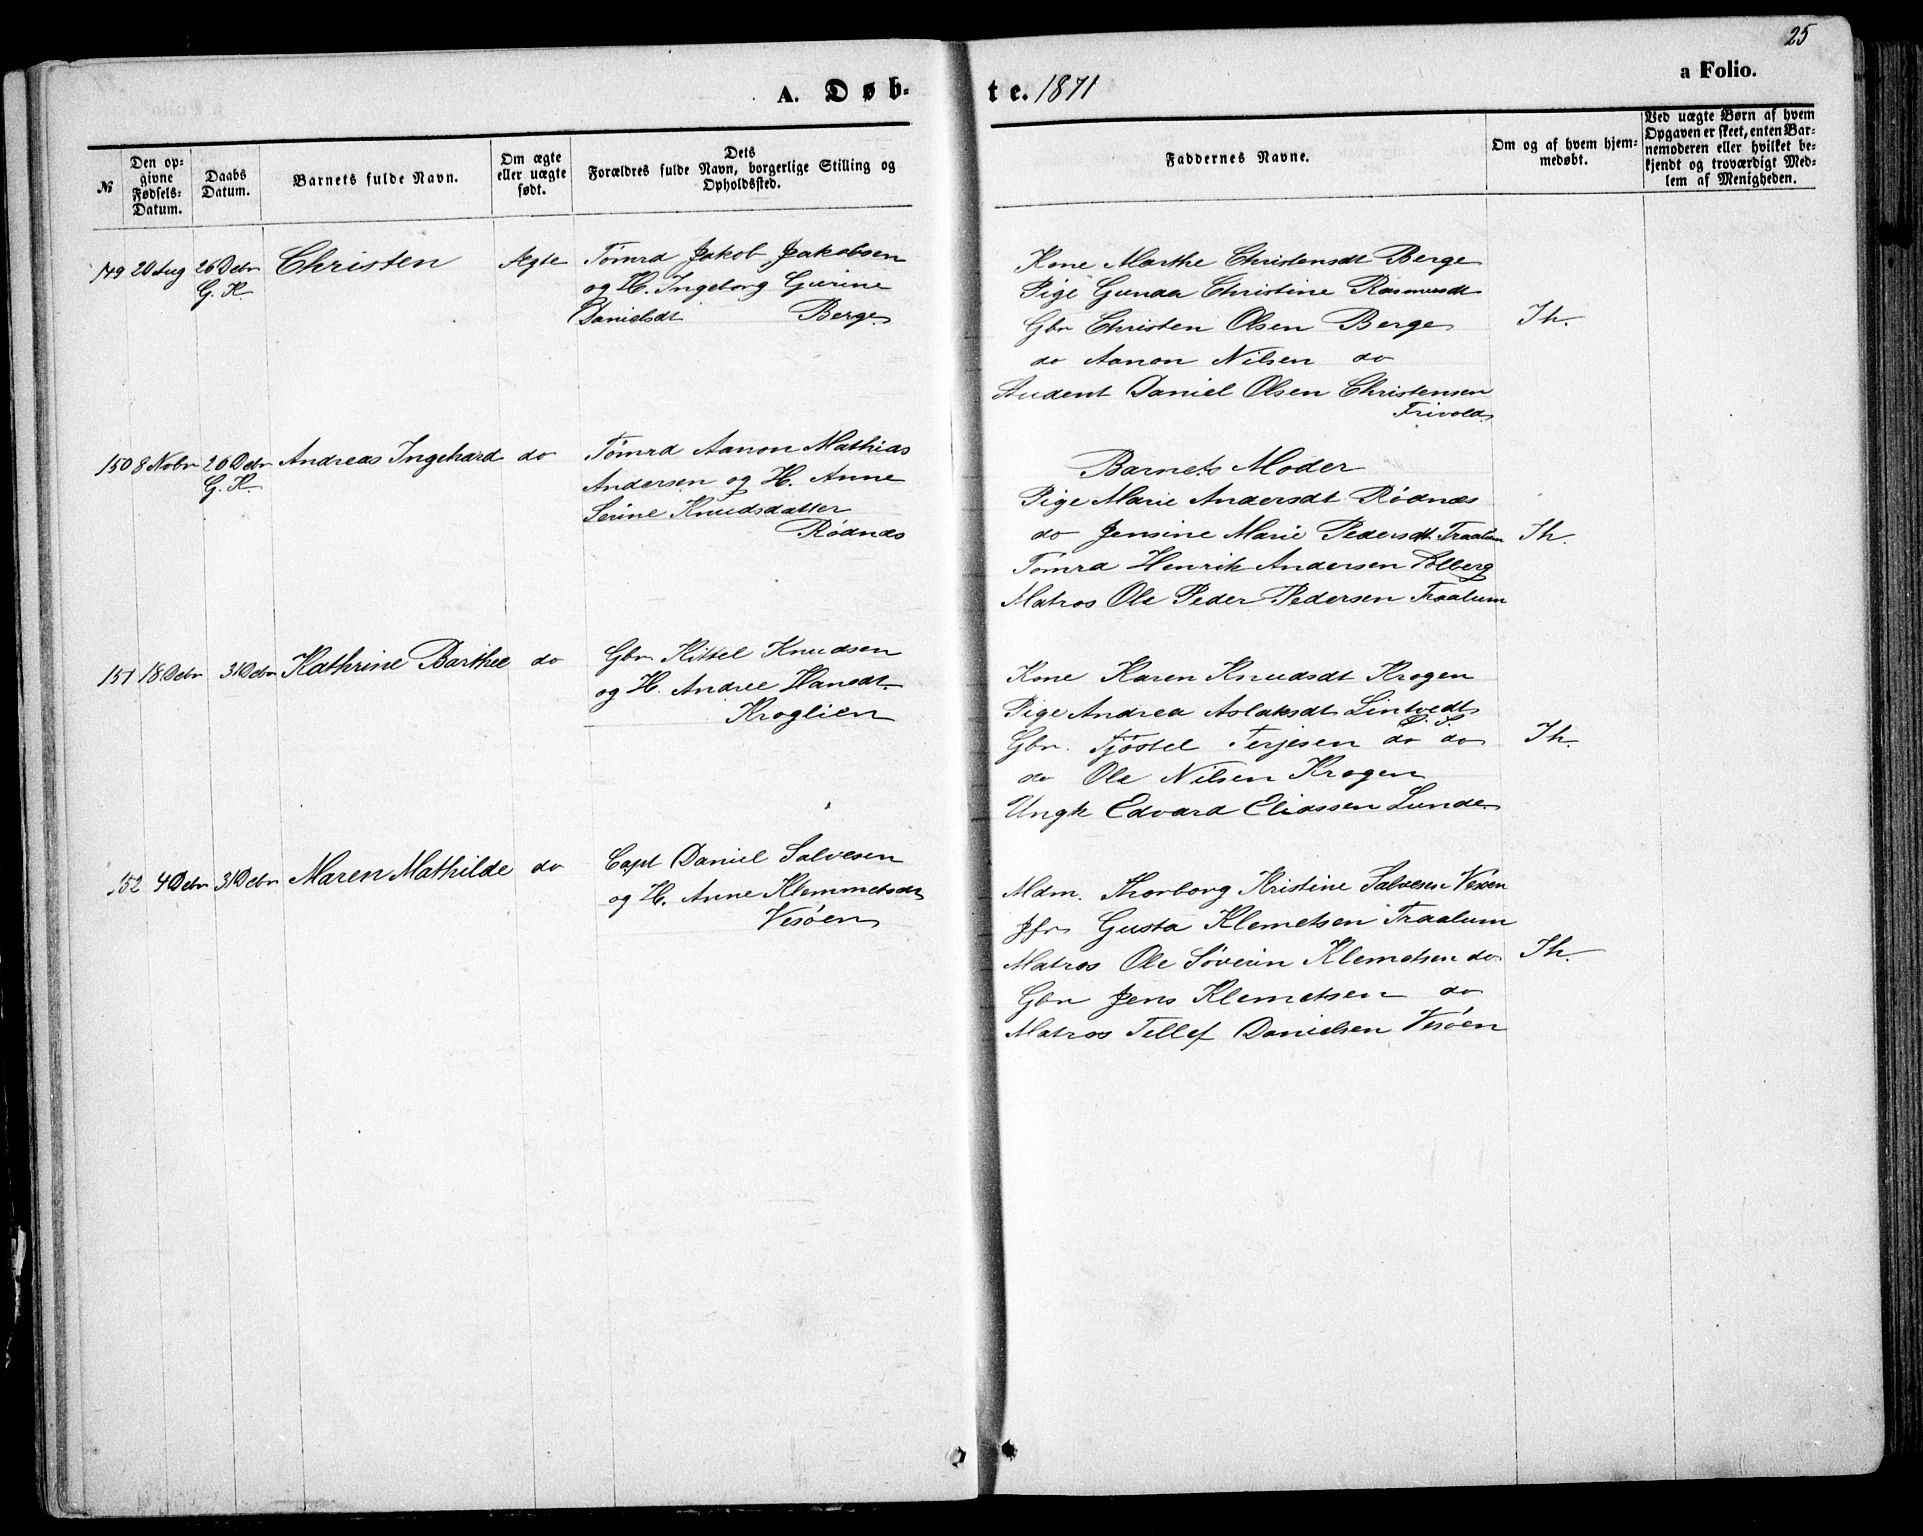 25
A. Døb- te. 1871 a Folio.
№
Den opgivne Fødsels-Datum.
Daabs Datum.
Barnets fulde Navn.
Om ægte eller uægte født.
Dets Forældres fulde Navn, borgerlige Stilling og Opholdssted.
Faddernes Navne.
Om og af hvem hjemmedøbt.
Ved uægte Børn af hvem Opgaven er skeet, enten Barnemoderen eller hvilket bekjendt og troværdigt Medlem af Menigheden.
149 20 Aug 26 Debr Christen Ægte Tømrd Jakob Jakobsen
G. K. og H. Ingeborg Gurine
Danielsdt Berge
Kone Marthe Christensdt Berge
Pige Gunda Christine Rasmusdt
Gbr Christen Olsen Berge Ih.
do Aanon Nilsen do
Student Daniel Olsen Christensen
Trivold
150 8 Nobr 26 Debr Andreas Ingehard do Tømrd Aanon Mathias
G. K. Andersen og H. Anne
Serine Knudsdatter
Rødnæs
Barnets Moder
Pige Marie Andersdt Rødnæs
do Jensine Marie Pedersdt Traalum Ih.
Tømrd Henrik Andersen Solberg
Matros Ole Peder Pedersen Traalum
151 18 Debr 31 Debr Kathrine Barthee do Gbr Kittel Knudsen
og H. Andree Hansdt
Kroglien
Kone Karen Knudsdt Krogen
Pige Andrea Aslaksdt Lintvedt
Gbr. Tjøstel Terjesen do do Ih.
do Ole Nilsen Krogen
Ungk Edvard Eliassen Lunde
152 4 Debr 31 Debr Maren Mathilde do Capt Daniel Salvesen
og H. Anne Klemmetsdt
Vesøen
Mdm. Thorborg Kristine Salvesen Vesøen
Jfr Gusta Klemetsen Traalum
Matros Ole Søverin Klemetsen do Ih.
Gbr Jens Klemetsen do
Matros Tellef Danielsen Vesøen